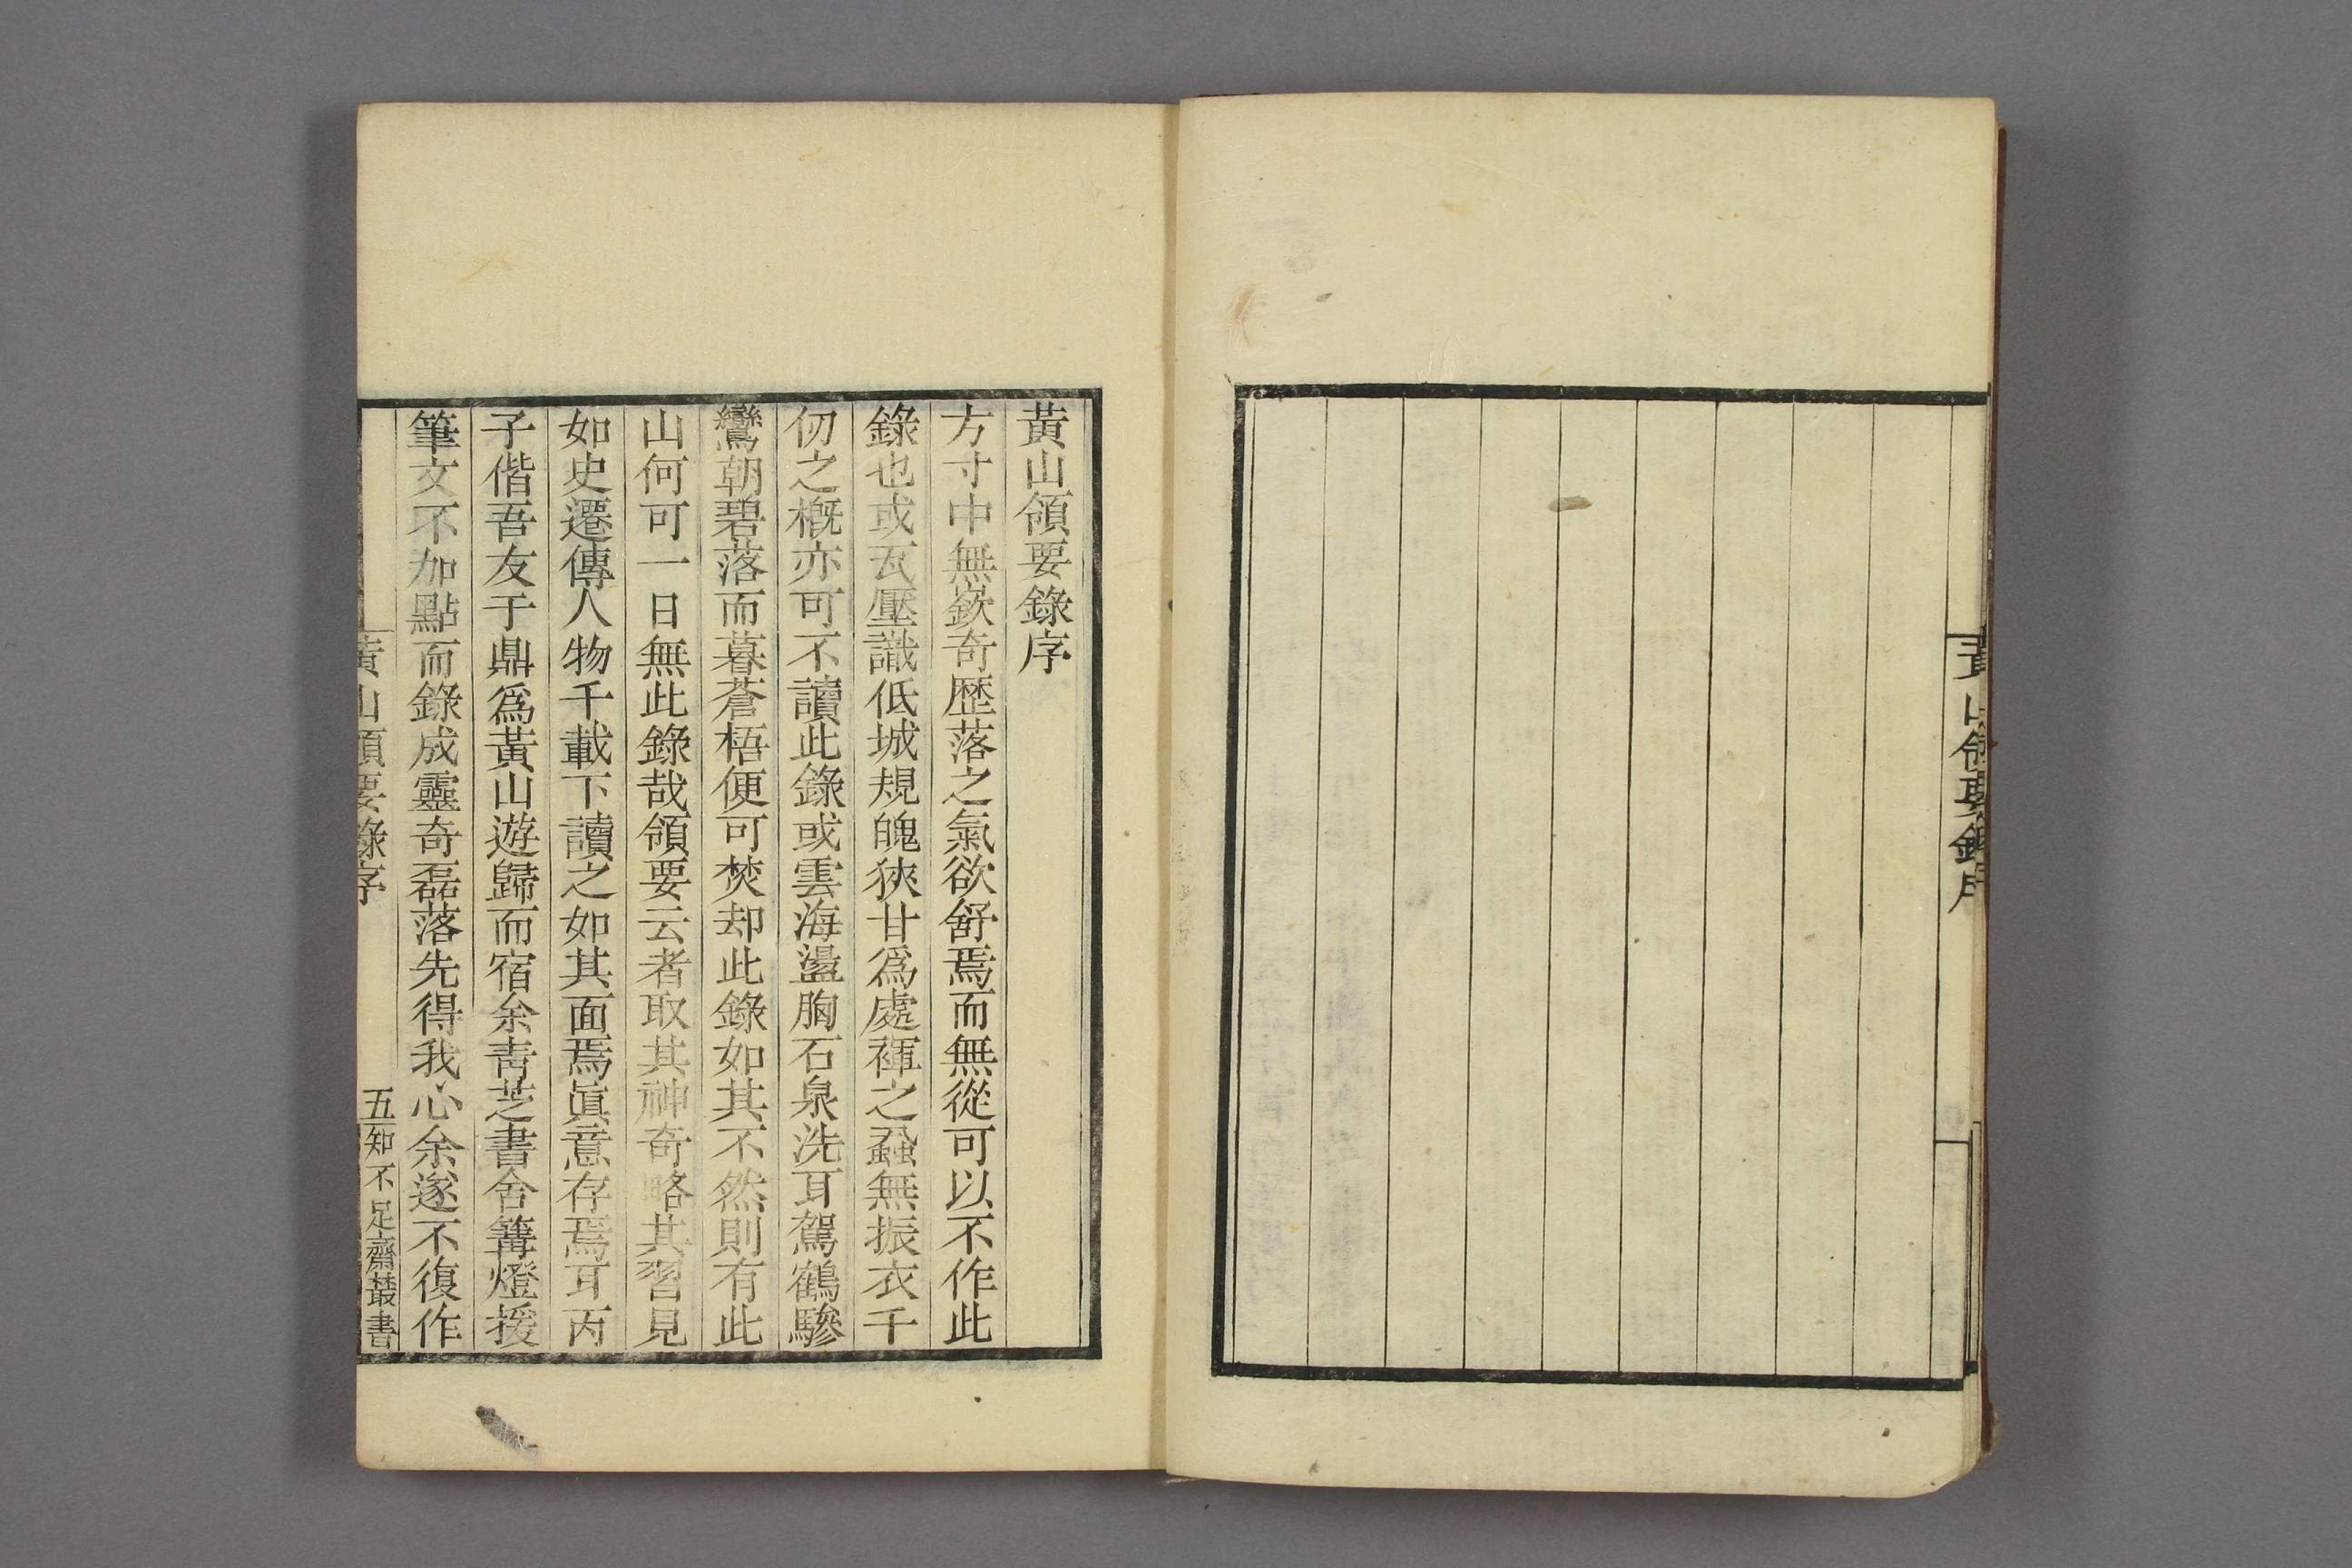 黃山領要錄序
黃山領要錄序
方寸中無嶔奇歷落之氣欲舒焉而無從可以不作此
錄也或瓦壓識低城規魄狹甘爲處褌之蝨無振衣千
仞之概亦可不讀此錄或雲海盪胸石泉洗耳駕鶴驂
鸞朝碧落而暮蒼梧便可焚却此錄如其不然則有此
山何可一日無此錄哉領要云者取其神奇略其習見
如史遷傳人物千載下讀之如其面焉眞意存焉耳丙
子偕吾友于鼎爲黃山遊歸而宿余靑芝書舍篝燈援
筆文不加點而錄成靈奇磊落先得我心余遂不復作
黃山領要錄序
五
知不足齋叢書